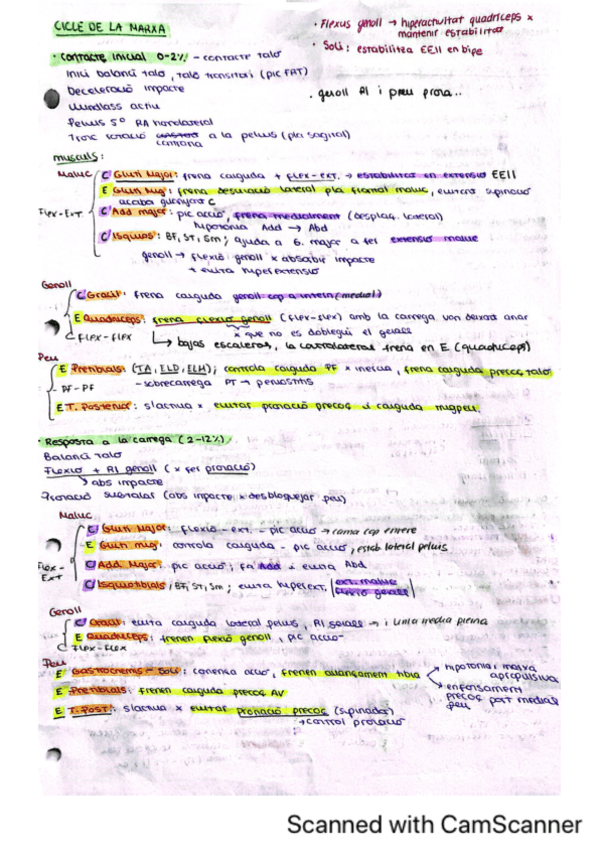 CICLE DE LA MARXA
· Flexus genoll → hiperactivitat quadríceps x mantenir estabilitat
· Soli: estabilitza EEII en bipe
· genoll RI i preu prona..
· Contacte inicial 0-2% - contacte taló
Inici balancí taló, taló transitori (pic FRT)
Deceleració impacte
Windlass actiu
Pelvis 5° RA homolateral
Tronc rotació contraria a la pelvis (pla sagital)
musculs:
Maluc
Flex-Ext
C Gluti Major: frena caiguda + flex-ext. → estabilitat en extensió EEII
E Gluti Mig: frena desviació lateral pla frontal maluc, evitara supinació
acaba guanyant C
C Add major: pic acció, frena medialment (desplaç. lateral)
hipotonia Add → Abd
C Isquios: BF, ST, SM; ajuda a G. major a fer extensió maluc
genoll → flexió genoll x absorbir impacte
+ evita hiperextensió
Genoll
C Gracil: frena caiguda genoll cap a intern (medial)
E Quadriceps: frena flexió genoll (flex-flex) amb la carrega van deixant anar
x que no es doblegui el genoll
Flex-flex
↳ bajas escaleras, la contralateral frena en E (quadriceps)
Peu
PF-PF
E Pretibials (TA, ELD, ELH); controla caiguda PF x inercia, frena caiguda precoç taló
- sobrecarrega PT → periostitis
E T. Posterior: s'activa x evitar pronació precoç i caiguda migpeu.
· Resposta a la carrega (2-12%)
Balancí taló
Flexió + RI genoll (x fer pronació)
↳ abs impacte
Pronació subtalar (abs impacte x desbloquejar peu)
Maluc
Flex-Ext
C Gluti Major: flexió - ext. - pic acció → cama cap enrere
E Gluti mig: controla caiguda - pic acció, estab lateral pelvis
C Add. Major: pic acció; fa Add i evita Abd
C Isquiotibials; BF, ST, SM; evita hiperext. ext. maluc flexió genoll
Genoll
Flex-flex
C Gracil: evita caiguda lateral pelvis, RI
E Quadriceps: frenen flexió genoll, pic acció
Peu
E Gastrocnemis - Soli: comença acció, frenen avançament tibia
hipotonia: marxa apropulsiva
enfonsament precoç part medial peu
E Pretibials: frenen caiguda precoç AV
E T. POST: s'activa x evitar pronació precoç (supinador)
→ control pronació
Scanned with CamScanner